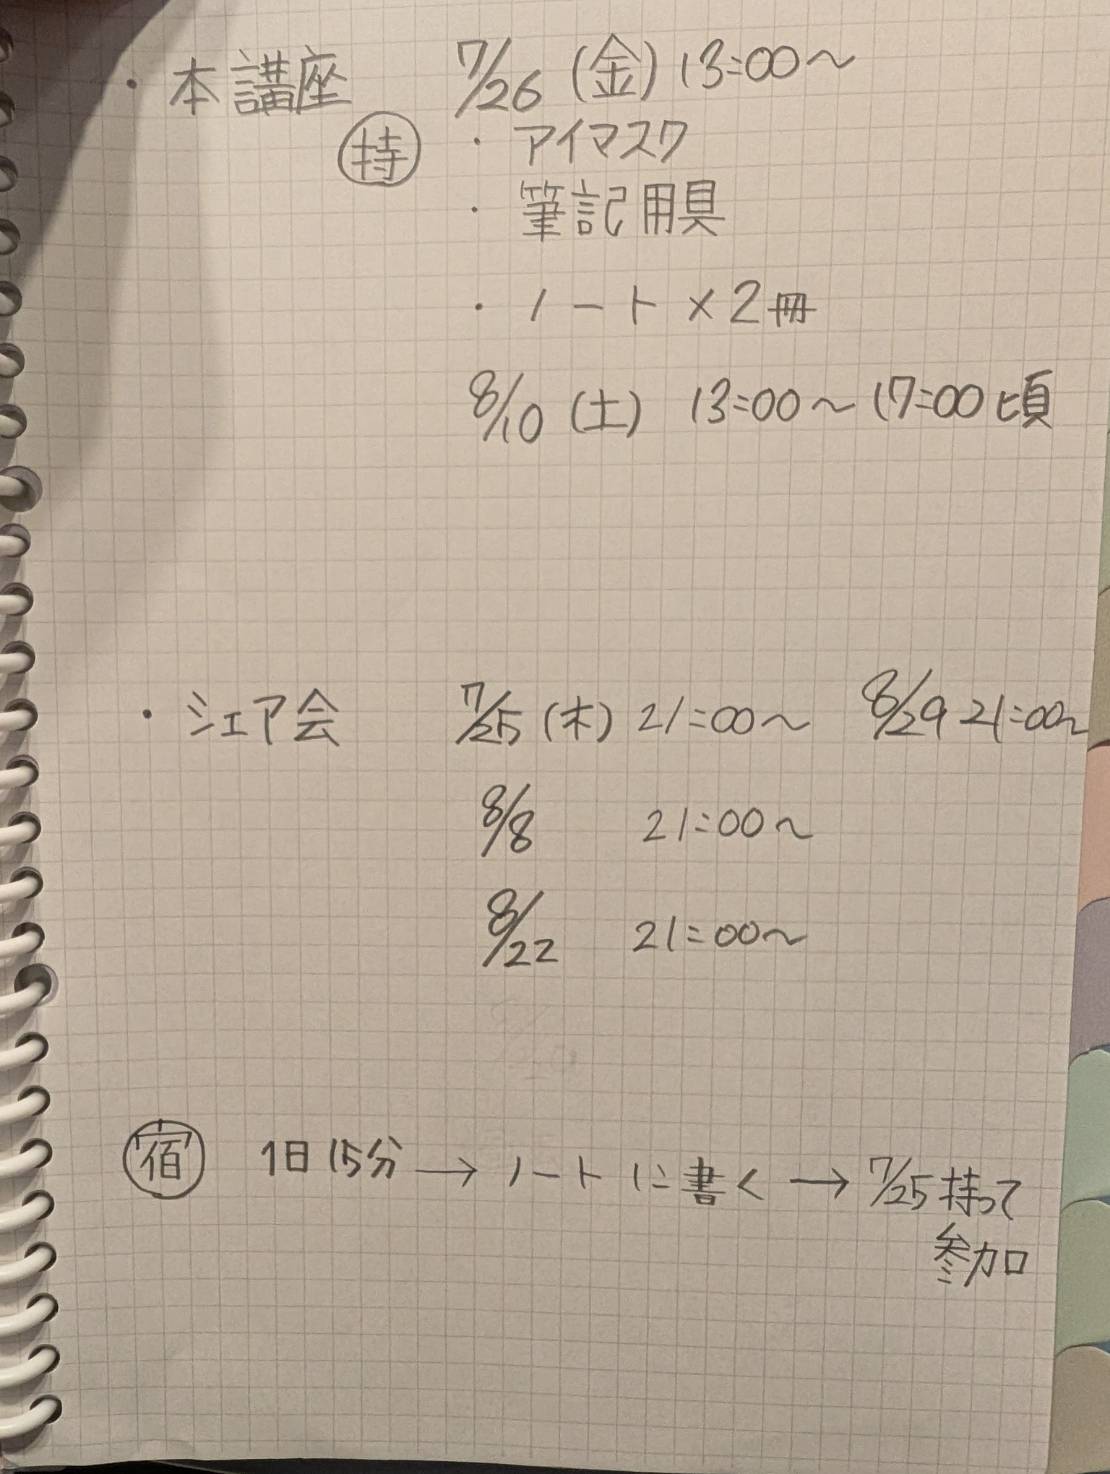 ・本講座 7/26 (金) 13:00～
持 ・アイマスク
・筆記用具
・ノート×2冊
8/10 (土) 13:00～17:00頃
・シェア会 7/25 (木) 21:00～ 8/29 21:00～
8/8 21:00～
8/22 21:00～
宿 1日15分→ノートに書く→7/25持って
参加